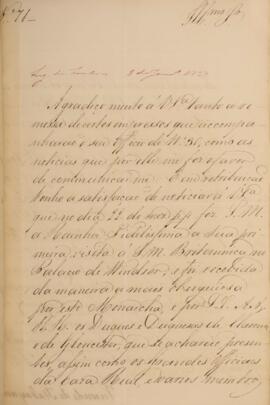 Nº 71
Illmo Sr.
Agradeço muito á VSa. tanto a re-
messa de certos impressos que accompa-
nharão o seu officio de Nº 35, como as
noticias que por elle me fez o favor
de communicar-me. E em retribuição
tenho a satisfação de noticiar á VSa.
que no dia 22 de mez pp fez S. M.
a Rainha Fidelissima a Sua pri-
meira visita a S. M. Britannica no
Palacio de Windsor, e foi recebida
da maneira a mais obsequiosa
por este Monarcha, e por S.S. A.A.
R.R. os Duques e Duquezas de Claren-
ce e de Glocester, que se acharão presen-
tes assim como os grandes Officiaes
da Caza Real e varios membros